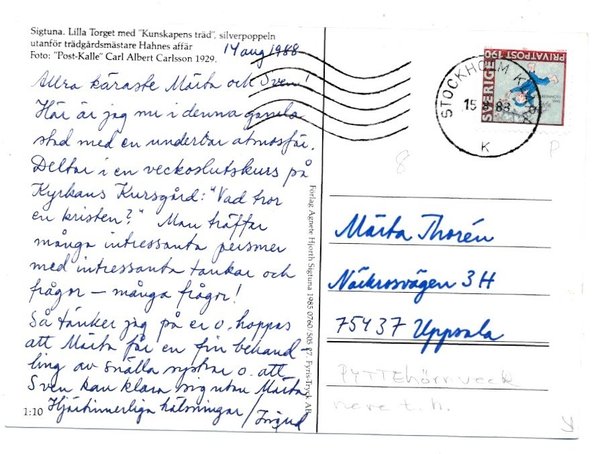 Sigtuna. Lilla Torget med "Kunskapens träd", silverpoppeln
utanför trädgårdsmästare Hahnes affär
Foto: "Post-Kalle" Carl Albert Carlsson 1929.
14 aug 1988
Allra käraste Märta och Sven!
Här är jag nu i denna gamla
stad med en underbar atmosfär.
Deltar i en veckoslutskurs på
Kyrkans Kursgård: "Vad tror
en kristen?" Man träffar
många intressanta personer
med intressanta tankar och
frågor – många frågor!
Så tänker jag på er o. hoppas
att Märta får en fin behand
ling av snälla systrar o. att
Sven kan klara sig utan Märta
Hjärtinnerliga hälsningar / Ingrid
1:10
Förlag Agnete Hjorth Sigtuna 1985 0760 505 87 Fyris-Tryck AB
STOCKHOLM
15 8 88
K
SVERIGE
PRIVATPOST 190
8
P
Märta Thorén
Näckrosvägen 3H
75437 Uppsala
PYTTEhörnveck
nere t.h.